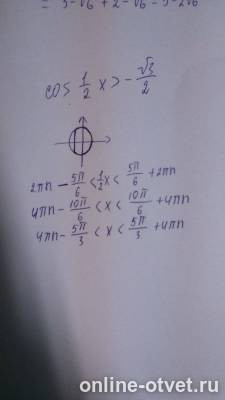 = 3-√6 + 2 - √6 = 5-2√6
cos 1/2 x > - √3/2
2πn - 5π/6 < 1/2 x < 5π/6 + 2πn
4πn - 10π/6 < x < 10π/6 + 4πn
4πn - 5π/3 < x < 5π/3 + 4πn
online-otvet.ru